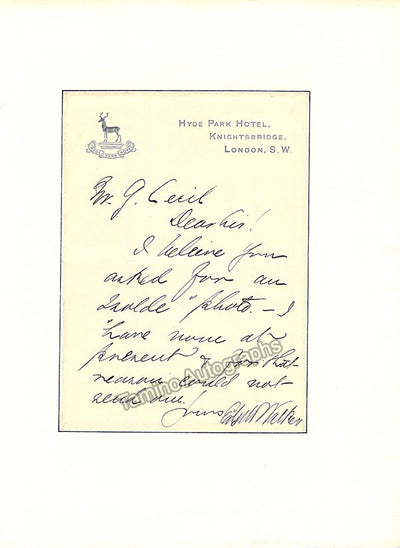 HYDE PARK HOTEL,
KNIGHTSBRIDGE.
LONDON, S.W.
Mr. G. Cecil
Dear Sir!
I believe you
asked for an
"Isolde" photo. – I
have none at
present & for that
reason could not
send one.
Yours Edyth Walker
TaminoAutographs